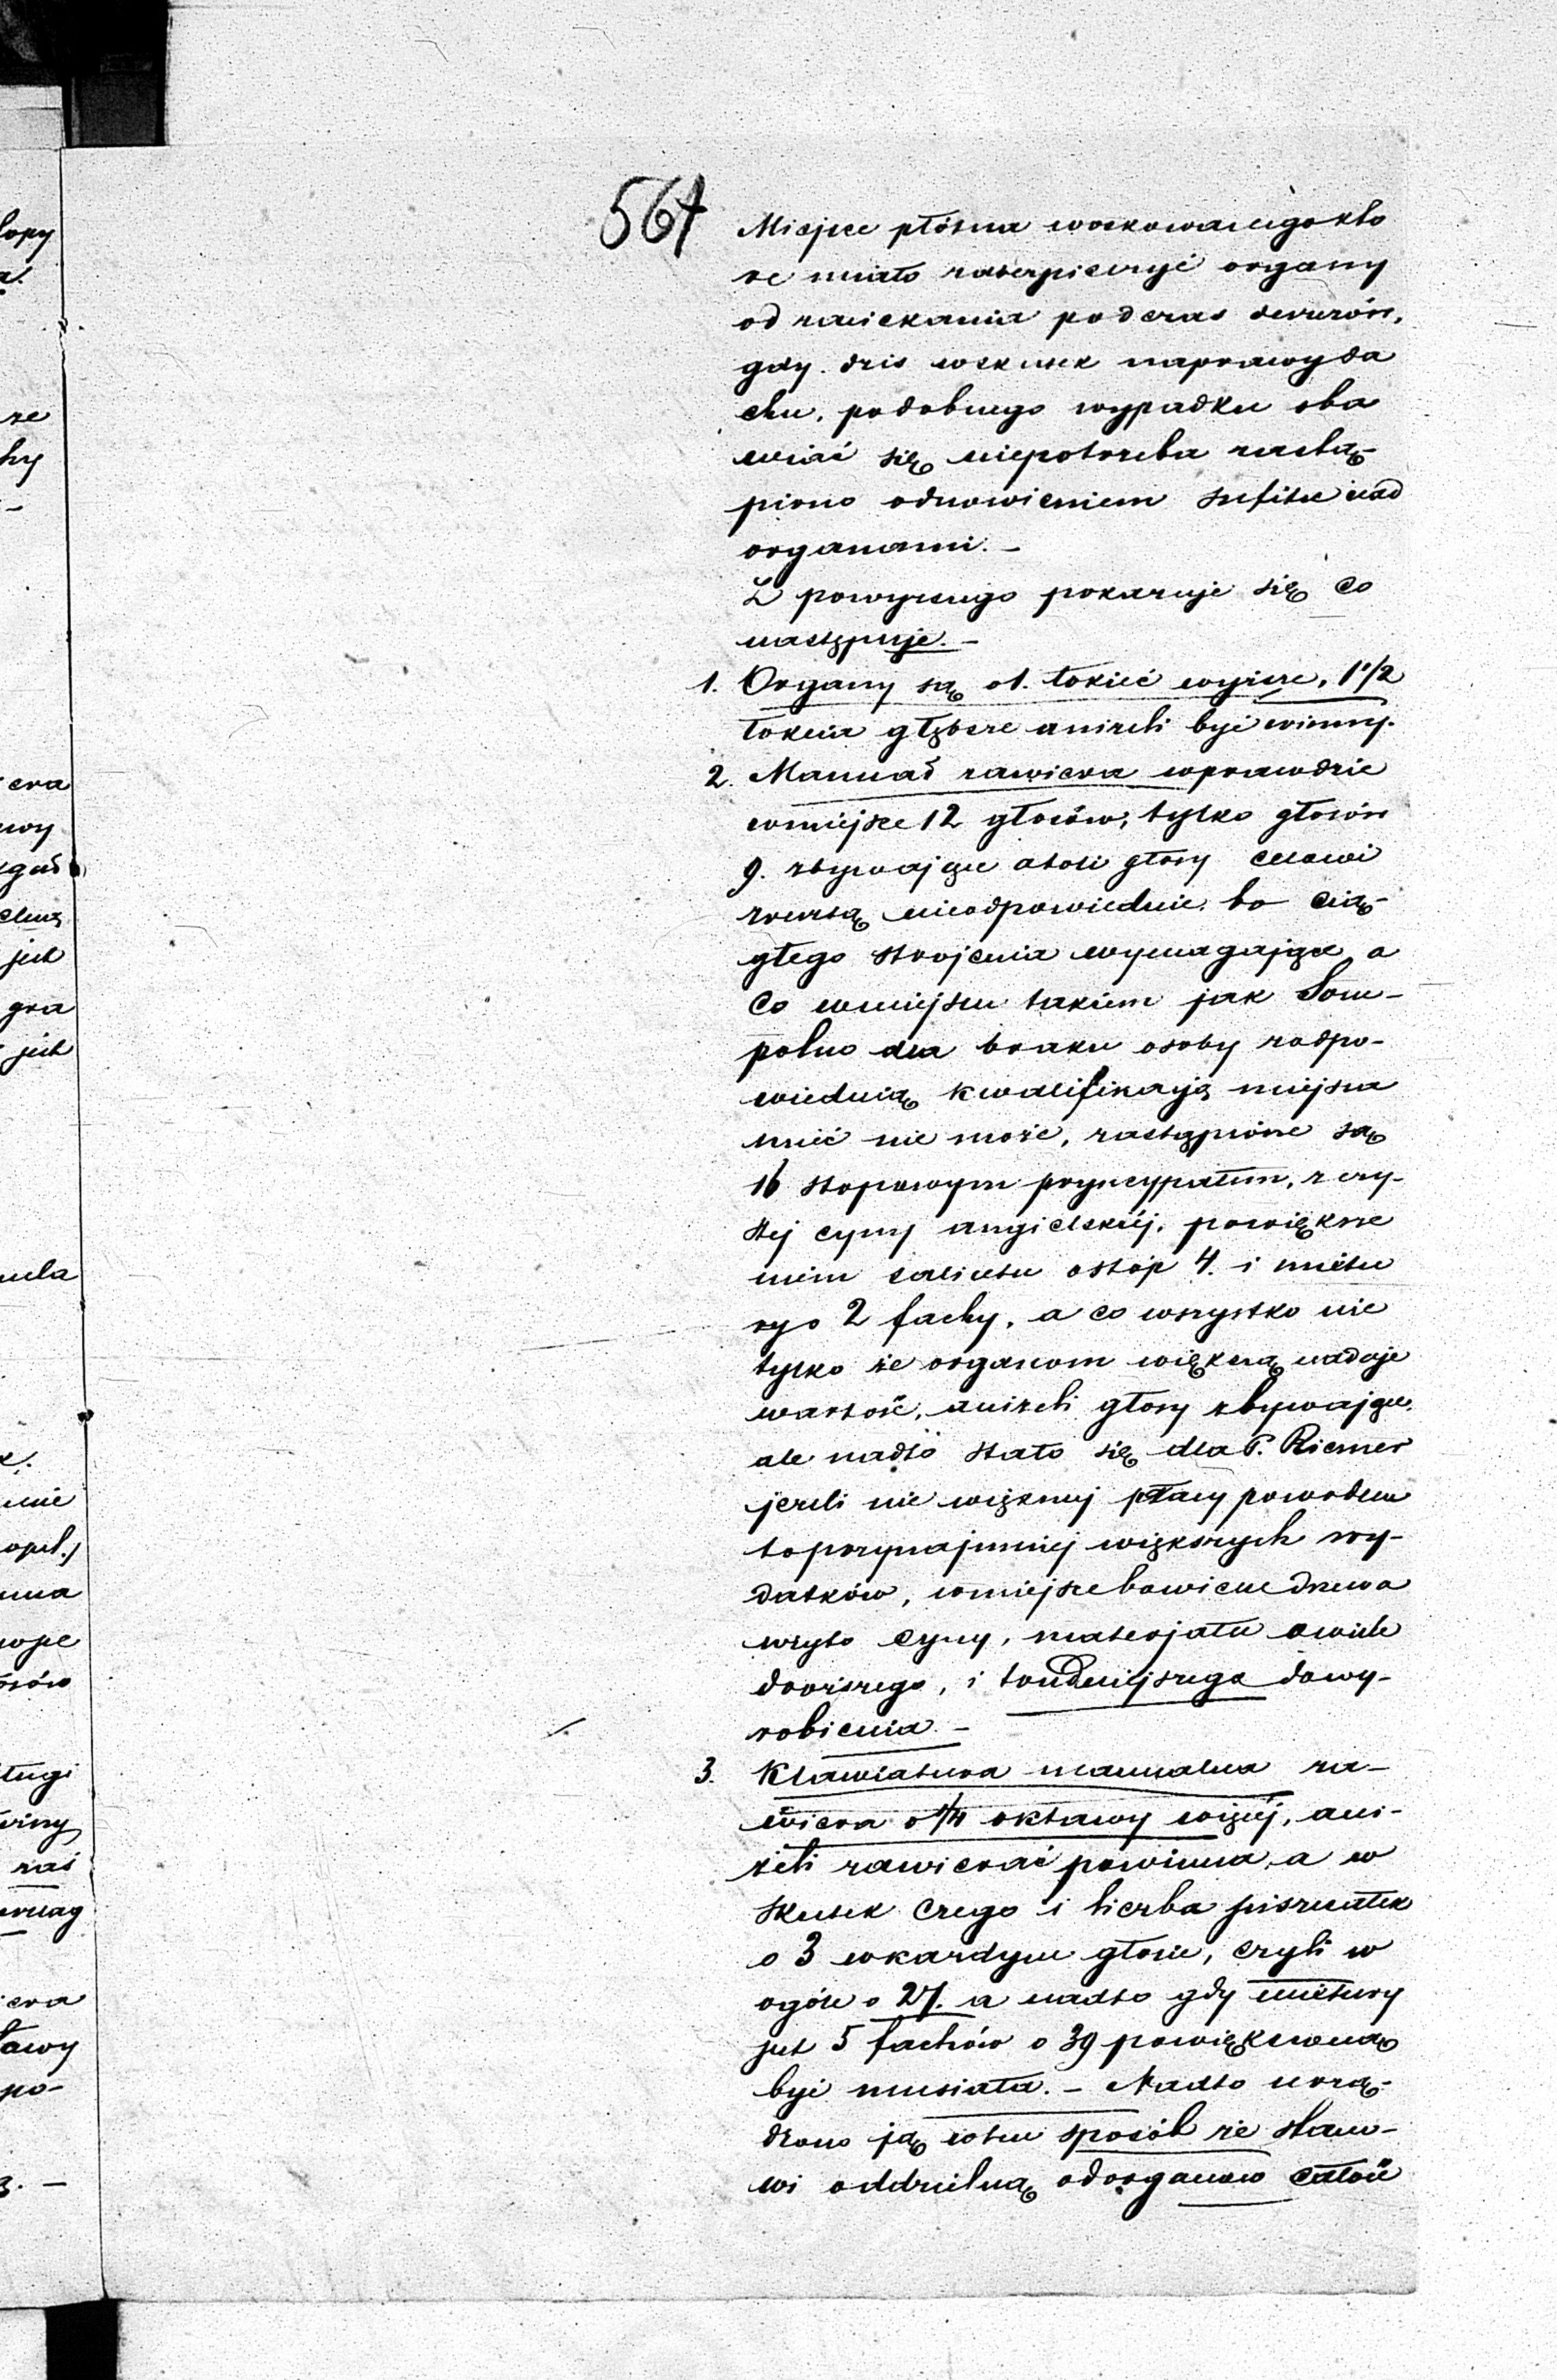 564
Miejsce płótna woskowanego któ
re miało zabezpieczyć organy
od zaciekania podczas deszczów,
gdy dziś wskutek naprawy da
chu, podobnego wypadku oba
wiać się niepotrzeba zastą-
piono odnowieniem sufitu nad
organami. -
Z powyższego pokazuje się co
następuje. -
1. Organy są o 1. łokieć wyższe, 1 1/2
łokcia głębsze aniżeli być winny.
2. Manuał zawiera wprawdzie
wmiejsce 12 głosów, tylko głosów
9. zbywające atoli głosy celowi
nieodpowiednie, bo cią-
głego strojenia wymagające a
co wmiejscu takiem jak Som-
polno dla braku osoby zodpo-
wiednią kwalifikacją miejsca
mieć nie może, zastąpione są
16 stopowym pryncypałem, z czy-
stej cyny angielskiéj, powiększe
niem salicetu ostóp 4. i mixtu
ry o 2 fachy, a co wszystko nie
tylko że organom większą nadaje
wartość, aniżeli głosy zbywające,
ale nadto stało się dla P. Riemer
jeżeli nie większej płacy powodem
toprzynajmniej większych wy-
datków, wmiejsce bowiem drzewa
wzięto cyny, materjału owiele
droższego, i trudniejszego dowy-
robienia. -
3. Klawiatura manualna za-
wiera o 1/4 oktawy więcéj, ani-
żeli zawierać powinna, a w
skutek czego i liczba piszczałek
o 3 wkażdym głosie, czyli w
ogóle o 27. a nadto gdy mixtury
jest 5 fachów o 39 powiększoną
być musiała. - Nadto urzą-
dzono ją wten sposób że stano-
wi oddzielną odorganów całość